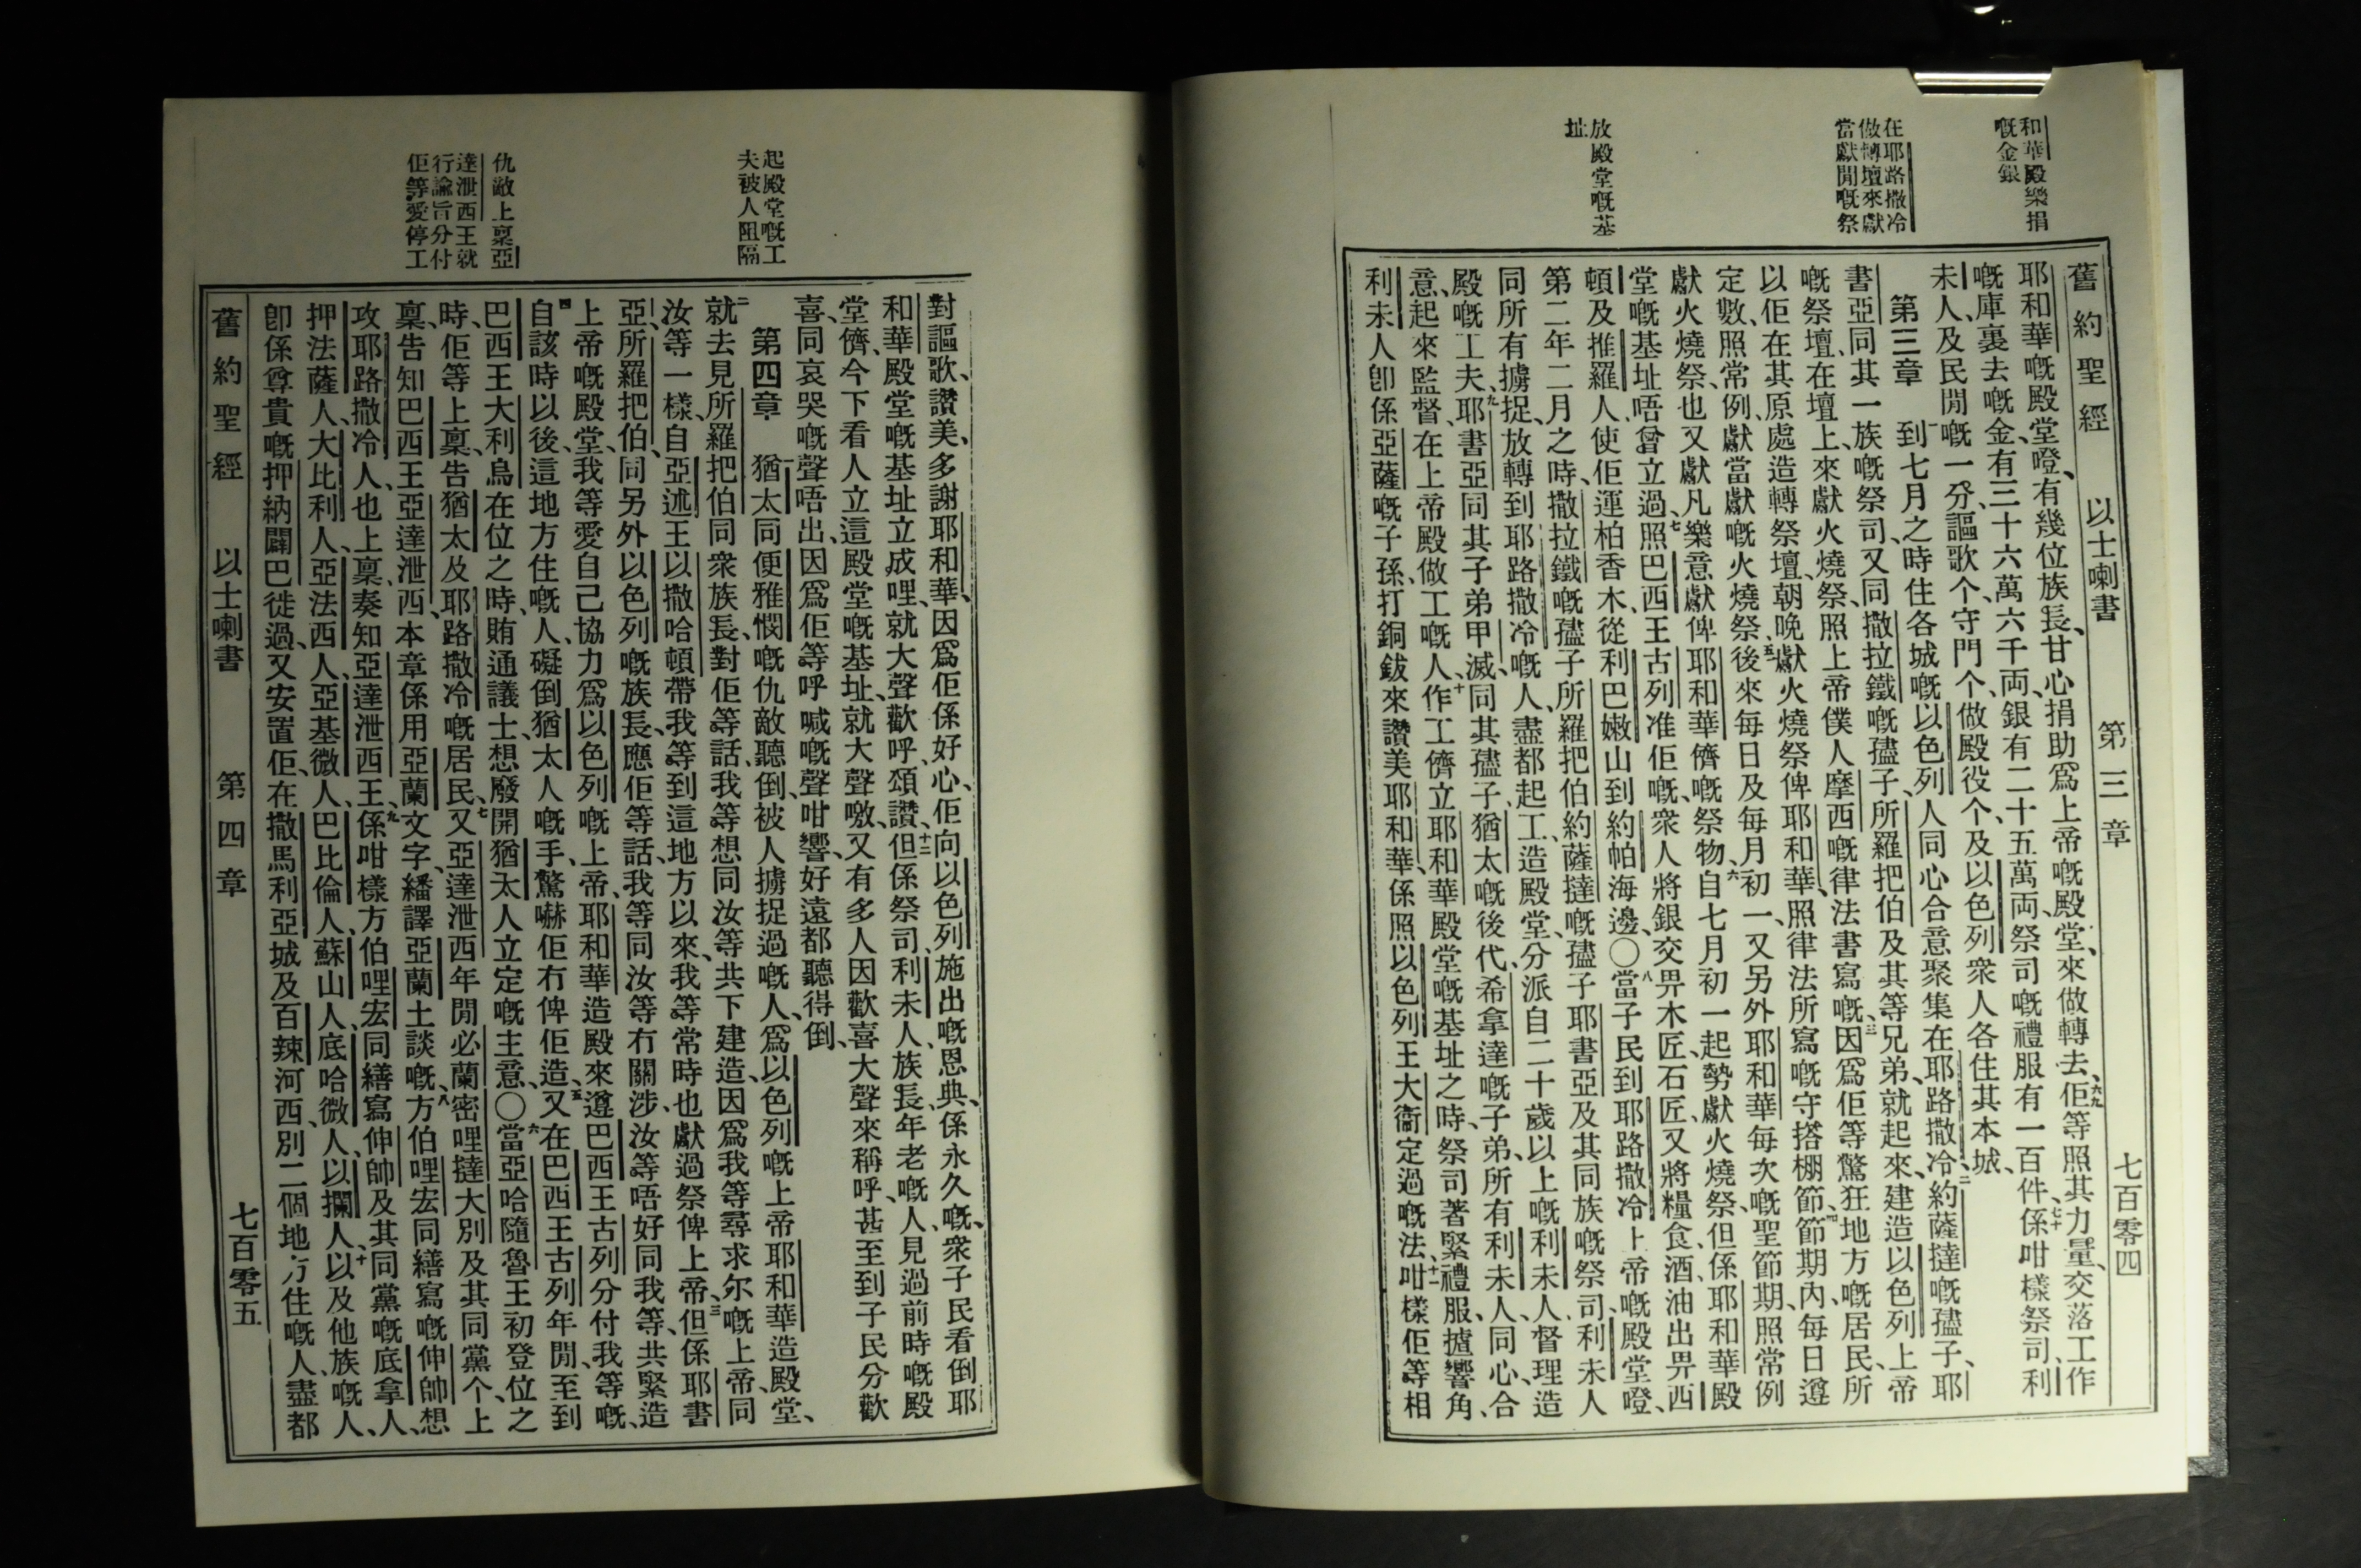 和華殿樂捐
嘅金銀
在耶路撒冷
做轉壇來獻
當獻閒嘅祭
放殿堂嘅基
址
舊約聖經 以士喇書 第三章 七百零四
耶和華嘅殿堂嶝、有幾位族長、甘心捐助爲上帝嘅殿堂、來做轉去、六九佢等照其力量、交落工作
嘅庫裏去嘅金、有三十六萬六千両、銀有二十五萬両、祭司嘅禮服有一百件、七十係咁樣祭司、利
未人、及民閒嘅一分、謳歌个、守門个、做殿役个、及以色列衆人各住其本城、
第三章 一到七月之時、住各城嘅以色列人同心合意聚集在耶路撒冷、二約薩撻嘅孻子、耶
書亞同其一族嘅祭司、又同撒拉鐵嘅孻子、所羅把伯及其等兄弟、就起來、建造以色列上帝
嘅祭壇、在壇上、來獻火燒祭、照上帝僕人摩西嘅律法書寫嘅、三因爲佢等驚狂地方嘅居民、所
以佢在其原處造轉祭壇、朝晚獻火燒祭俾耶和華、照律法所寫嘅守搭棚節、四節期內、每日遵
定數、照常例、獻當獻嘅火燒祭、五後來每日及每月初一、又另外耶和華每次嘅聖節期、照常例
獻火燒祭也、又獻凡樂意獻俾耶和華儕嘅祭物、六自七月初一起勢獻火燒祭、但係耶和華殿
堂嘅基址唔曾立過、七照巴西王古列准佢嘅、衆人將銀交畀木匠、石匠、又將糧食、酒、油出畀西
頓及推羅人、使佢運柏香木從利巴嫩山到約帕海邊、〇八當子民到耶路撒冷上帝嘅殿堂嶝、
第二年二月之時、撒拉鐵嘅孻子所羅把伯、約薩撻嘅孻子耶書亞及其同族嘅祭司、利未人
同所有擄捉、放轉到耶路撒冷嘅人、盡都起工、造殿堂、分派自二十歲以上嘅利未人督理造
殿嘅工夫、九耶書亞同其子弟甲滅、同其孻子、猶太嘅後代、希拿達嘅子弟、所有利未人、同心合
意、起來監督、在上帝殿做工嘅人、十作工儕立耶和華殿堂嘅基址之時、祭司著緊禮服、摣響角、
利未人卽係亞薩嘅子孫、打銅鈸來讚美耶和華、係照以色列王大衞定過嘅法、十一咁樣佢等相
起殿堂嘅工
夫被人阻隔
仇敵上稟亞
達泄西王就
行諭旨分付
佢等愛停工
對謳歌、讚美、多謝耶和華、因爲佢係好心、佢向以色列施出嘅恩典、係永久嘅、衆子民看倒耶
和華殿堂嘅基址立成哩、就大聲歡呼、頌讚、十二但係祭司、利未人、族長、年老嘅人、見過前時嘅殿
堂儕、今下看人立這殿堂嘅基址、就大聲噭、又有多人因歡喜大聲來稱呼、甚至到子民分歡
喜、同哀哭嘅聲唔出、因爲佢等呼喊嘅聲咁響、好遠都聽得倒、
第四章 一猶太同便雅憫嘅仇敵聽倒、被人擄捉過嘅人、爲以色列嘅上帝耶和華造殿堂、
二就去見所羅把伯同衆族長、對佢等話、我等想同汝等共下建造、因爲我等尋求尔嘅上帝、同
汝等一樣、自亞述王以撒哈頓帶我等到這地方以來、我等常時也獻過祭俾上帝、三但係耶書
亞、所羅把伯、同另外以色列嘅族長、應佢等話、我等同汝等冇關涉、汝等唔好同我等、共緊造
上帝嘅殿堂、我等愛自己協力爲以色列嘅上帝、耶和華造殿來遵巴西王古列分付我等嘅、
四自該時以後、這地方住嘅人、礙倒猶太人嘅手、驚嚇佢冇俾佢造、五又在巴西王古列年閒、至到
巴西王大利烏在位之時、賄通議士、想廢開猶太人立定嘅主意、〇六當亞哈隨魯王初登位之
時、佢等上稟、告猶太及耶路撒冷嘅居民、七又亞達泄西年閒、必蘭密哩撻大別及其同黨个、上
稟、告知巴西王亞達泄西、本章係用亞蘭文字、繙譯亞蘭土談嘅、八方伯哩宏同繕寫嘅伸帥想
攻耶路撒冷人也上稟、奏知亞達泄西王、九係咁樣方伯哩宏同繕寫伸帥及其同黨嘅底拿人、
押法薩人、大比利人、亞法西人、亞基微人、巴比倫人、蘇山人、底哈微人、以攔人、十以及他族嘅人、
卽係尊貴嘅押納闢巴徙過、又安置佢、在撒馬利亞城及百辣河西、別二個地方住嘅人、盡都
舊約聖經 以士喇書 第四章 七百零五